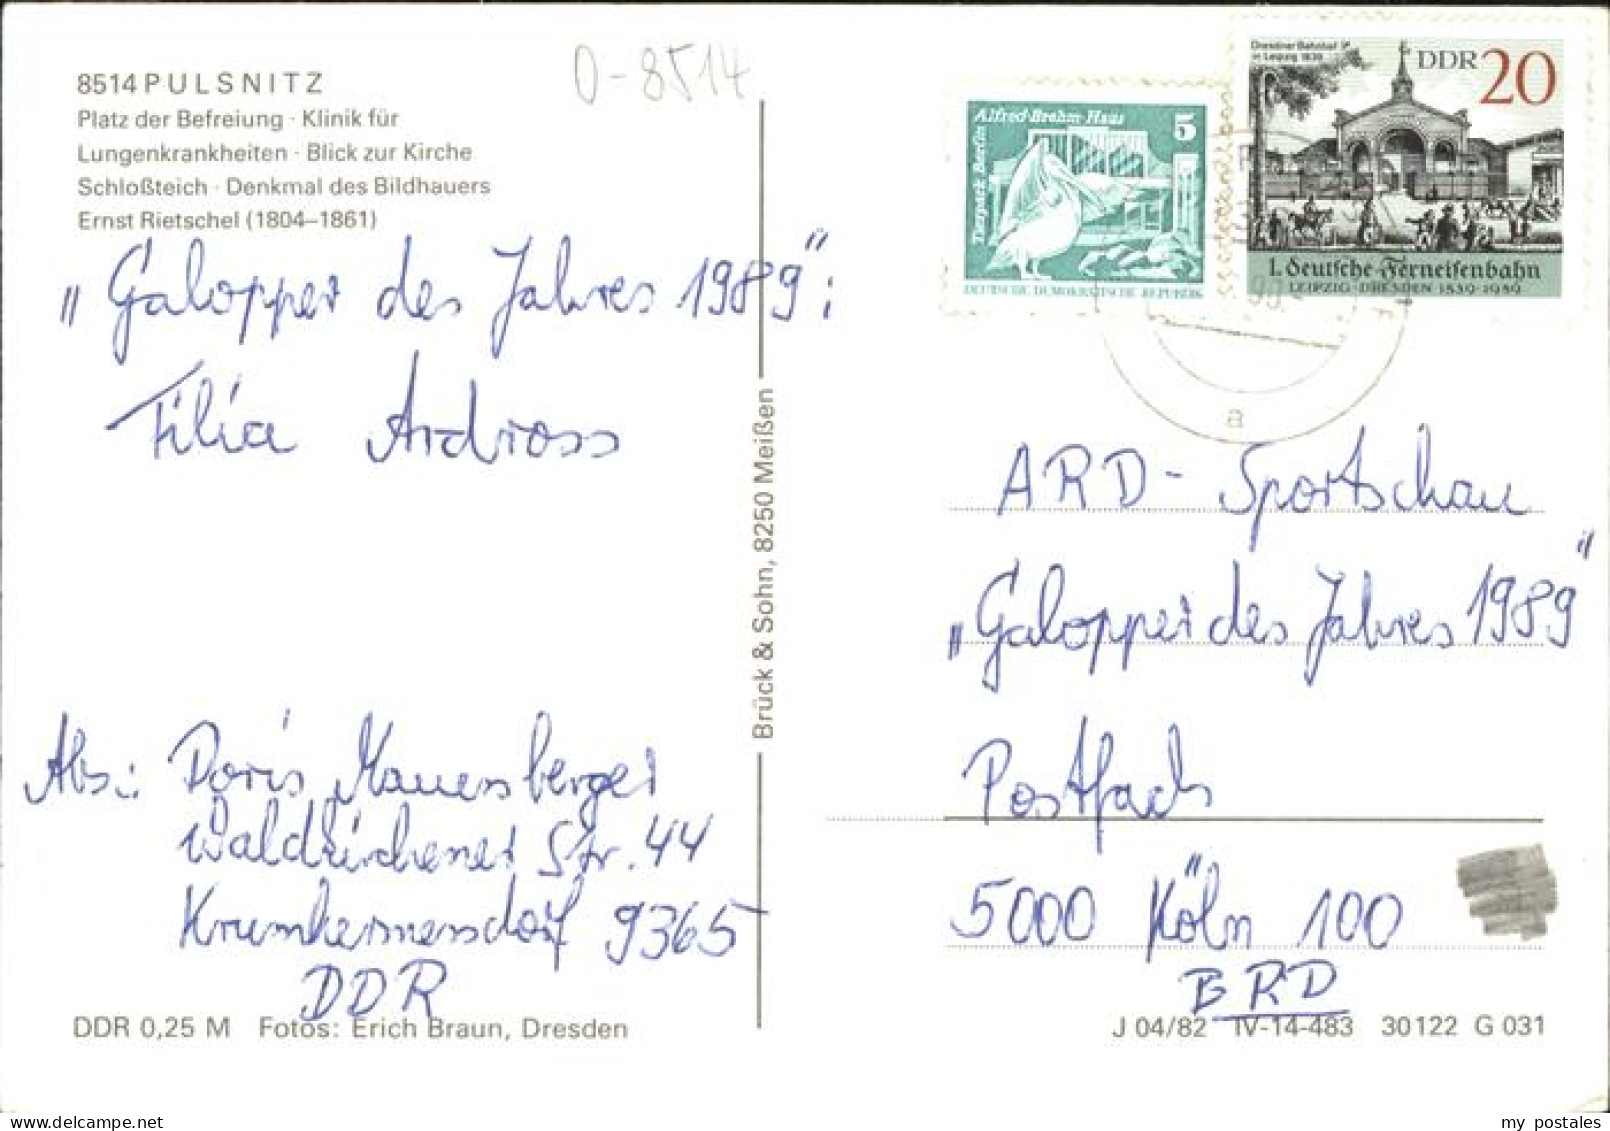 8514 PULSNITZ
Platz der Befreiung · Klinik für
Lungenkrankheiten · Blick zur Kirche
Schloßteich · Denkmal des Bildhauers
Ernst Rietschel (1804–1861)
0-8514
„Galopper des Jahres 1989":
Filia Ardross
Abs.: Doris Mauersberger
Waldkirchener Str. 44
Krumhermersdorf 9365
DDR
DDR 0,25 M Fotos: Erich Braun, Dresden
Brück & Sohn, 8250 Meißen
Alfred-Brehm-Haus 5
Tierpark Berlin
DEUTSCHE DEMOKRATISCHE REPUBLIK
Dresdner Bahnhof
in Leipzig 1839
DDR 20
1. deutsche Ferneisenbahn
LEIPZIG-DRESDEN 1839-1989
a
ARD-Sportschau
„Galopper des Jahres 1989"
Postfach
5000 Köln 100
BRD
J 04/82 IV-14-483 30122 G 031
my postales